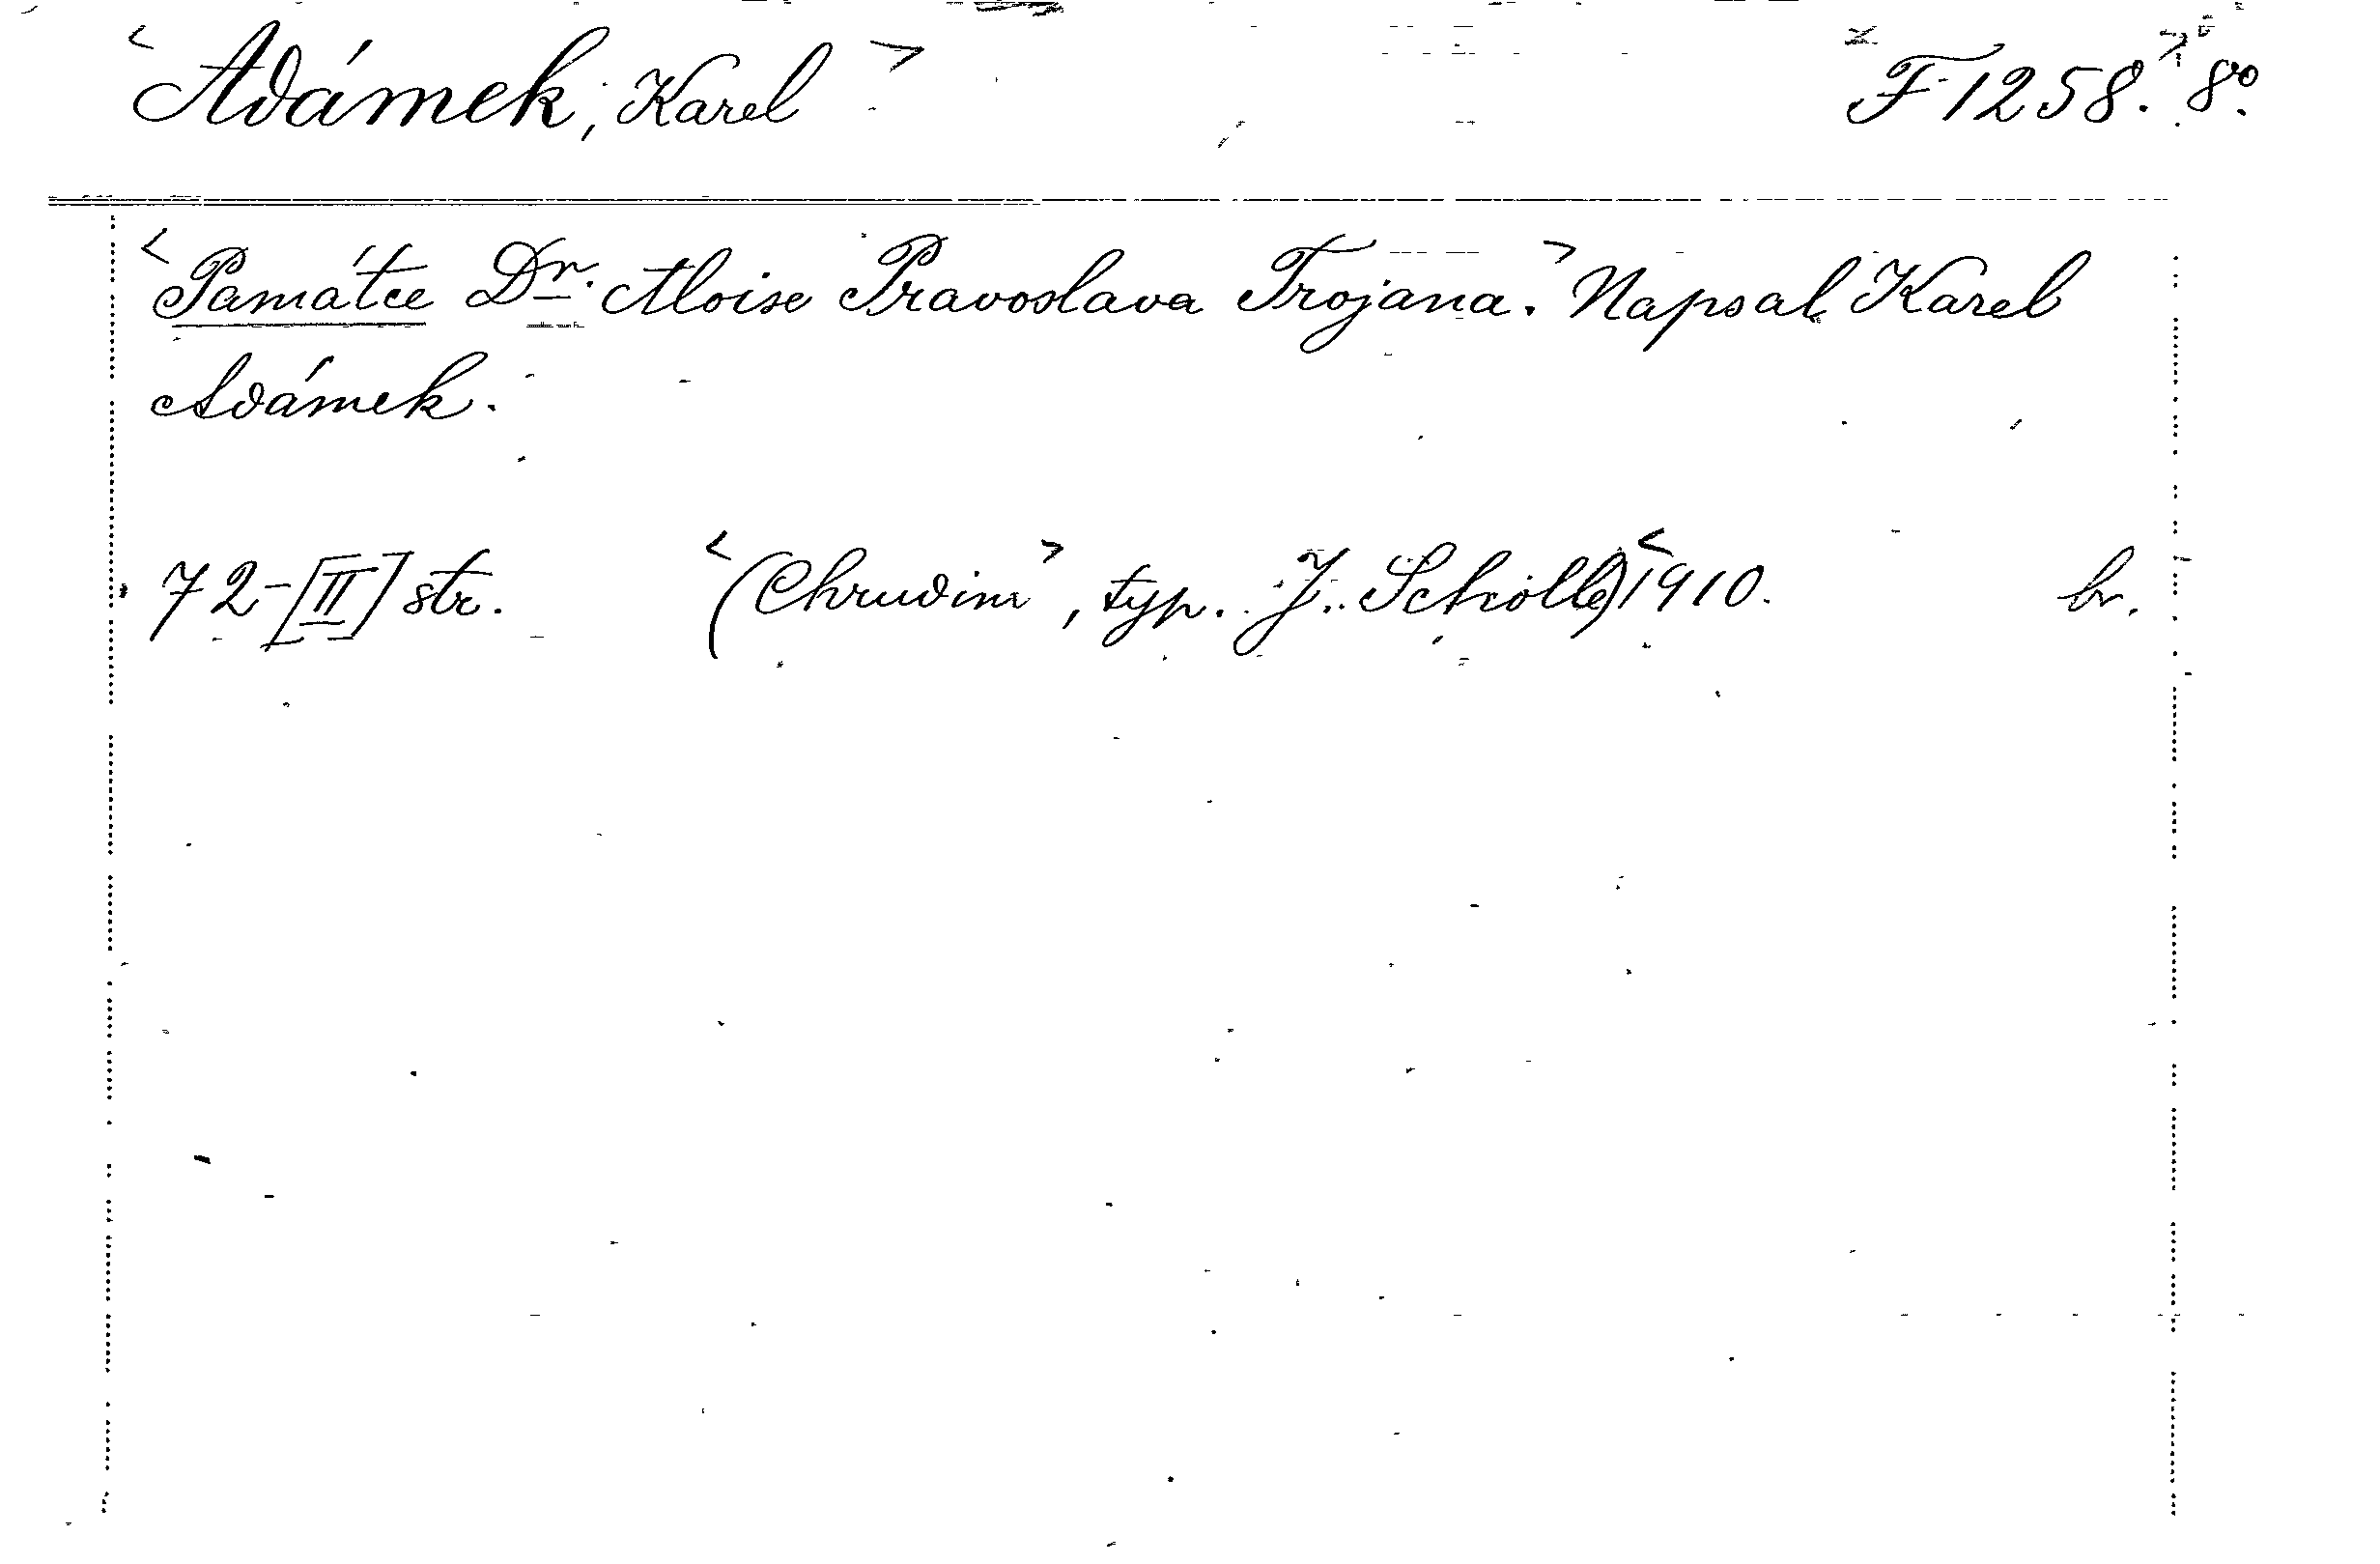 <Adámek, Karel> <F 1258.> 8º.
<Památce Dr. Aloise Pravoslava Trojana.> Napsal Karel
Adámek.
72-[II] str. <(Chrudim>, typ. J. Scholle) <1910. br.